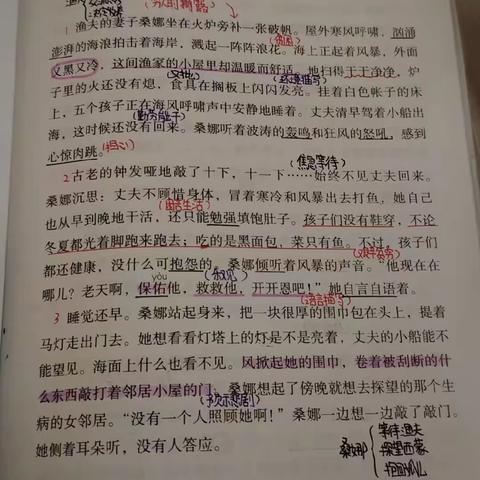 1 渔夫的妻子桑娜坐在火炉旁补一张破帆。屋外寒风呼啸，汹涌
澎湃的海浪拍击着海岸，溅起一阵阵浪花。海上正起着风暴，外面
又黑又冷，这间渔家的小屋里却温暖而舒适。地扫得干干净净，炉
子里的火还没有熄，食具在搁板上闪闪发亮。挂着白色帐子的床
上，五个孩子正在海风呼啸声中安静地睡着。丈夫清早驾着小船出
(勤劳肚子)
海，这时候还没有回来。桑娜听着波涛的轰鸣和狂风的怒吼，感到
心惊肉跳。(担心)
(焦急等待)
2 古老的钟发哑地敲了十下，十一下……始终不见丈夫回来。
桑娜沉思：丈夫不顾惜身体，冒着寒冷和风暴出去打鱼，她自己
也从早到晚地干活，还只能勉强填饱肚子。孩子们没有鞋穿，不论
冬夏都光着脚跑来跑去；吃的是黑面包，菜只有鱼。不过，孩子们
都还健康，没什么可抱怨的。桑娜倾听着风暴的声音。“他现在在
yòu
哪儿？老天啊，保佑他，救救他，开开恩吧！”她自言自语着。
(语言描写)
3 睡觉还早。桑娜站起身来，把一块很厚的围巾包在头上，提着
马灯走出门去。她想看看灯塔上的灯是不是亮着，丈夫的小船能不
能望见。海面上什么也看不见。风掀起她的围巾，卷着被刮断的什
么东西敲打着邻居小屋的门。桑娜想起了傍晚就想去探望的那个生
(预示悲剧)
病的女邻居。“没有一个人照顾她啊！”桑娜一边想一边敲了敲门。
她侧着耳朵听，没有人答应。
桑娜
等待渔夫
探望西蒙
抱回孤儿